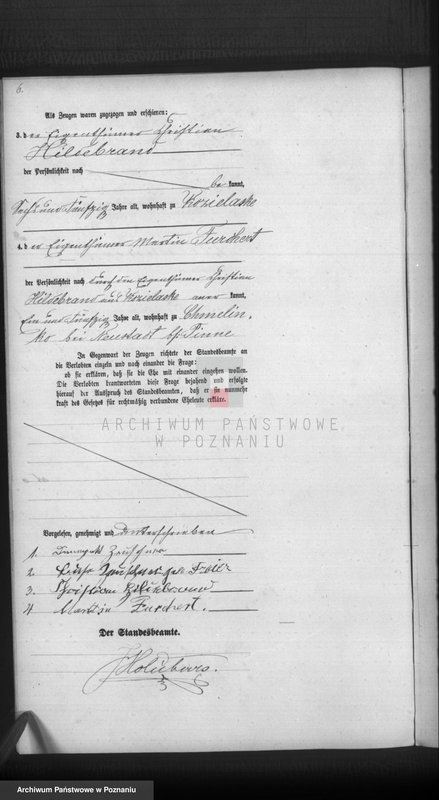 6.
Als Zeugen waren zugezogen und erschienen:
3. der Eigenthümer Christian
Hildebrand
der Persönlichkeit nach
be kannt,
sechs und fünfzig Jahre alt, wohnhaft zu Kozielaske
4. der Eigenthümer Martin Furchert
der Persönlichkeit nach durch den Eigenthümer Christian
Hildebrand aus Kozielaske aner kannt,
ein und fünfzig Jahre alt, wohnhaft zu Chmelin,
ko bei Neustadt b/Pinne
In Gegenwart der Zeugen richtete der Standesbeamte an
die Verlobten einzeln und nach einander die Frage:
ob sie erklären, daß sie die Ehe mit einander eingehen wollen.
Die Verlobten beantworteten diese Frage bejahend und erfolgte
hierauf der Ausspruch des Standesbeamten, daß er sie nunmehr
kraft des Gesetzes für rechtmäßig verbundene Eheleute erkläre.
ARCHIWUM PAŃSTWOWE
W POZNANIU
Vorgelesen, genehmigt und unterschrieben
1.
2.
3. Christian Hildebrand
4 Martin Furchert.
Der Standesbeamte.
Archiwum Państwowe w Poznaniu